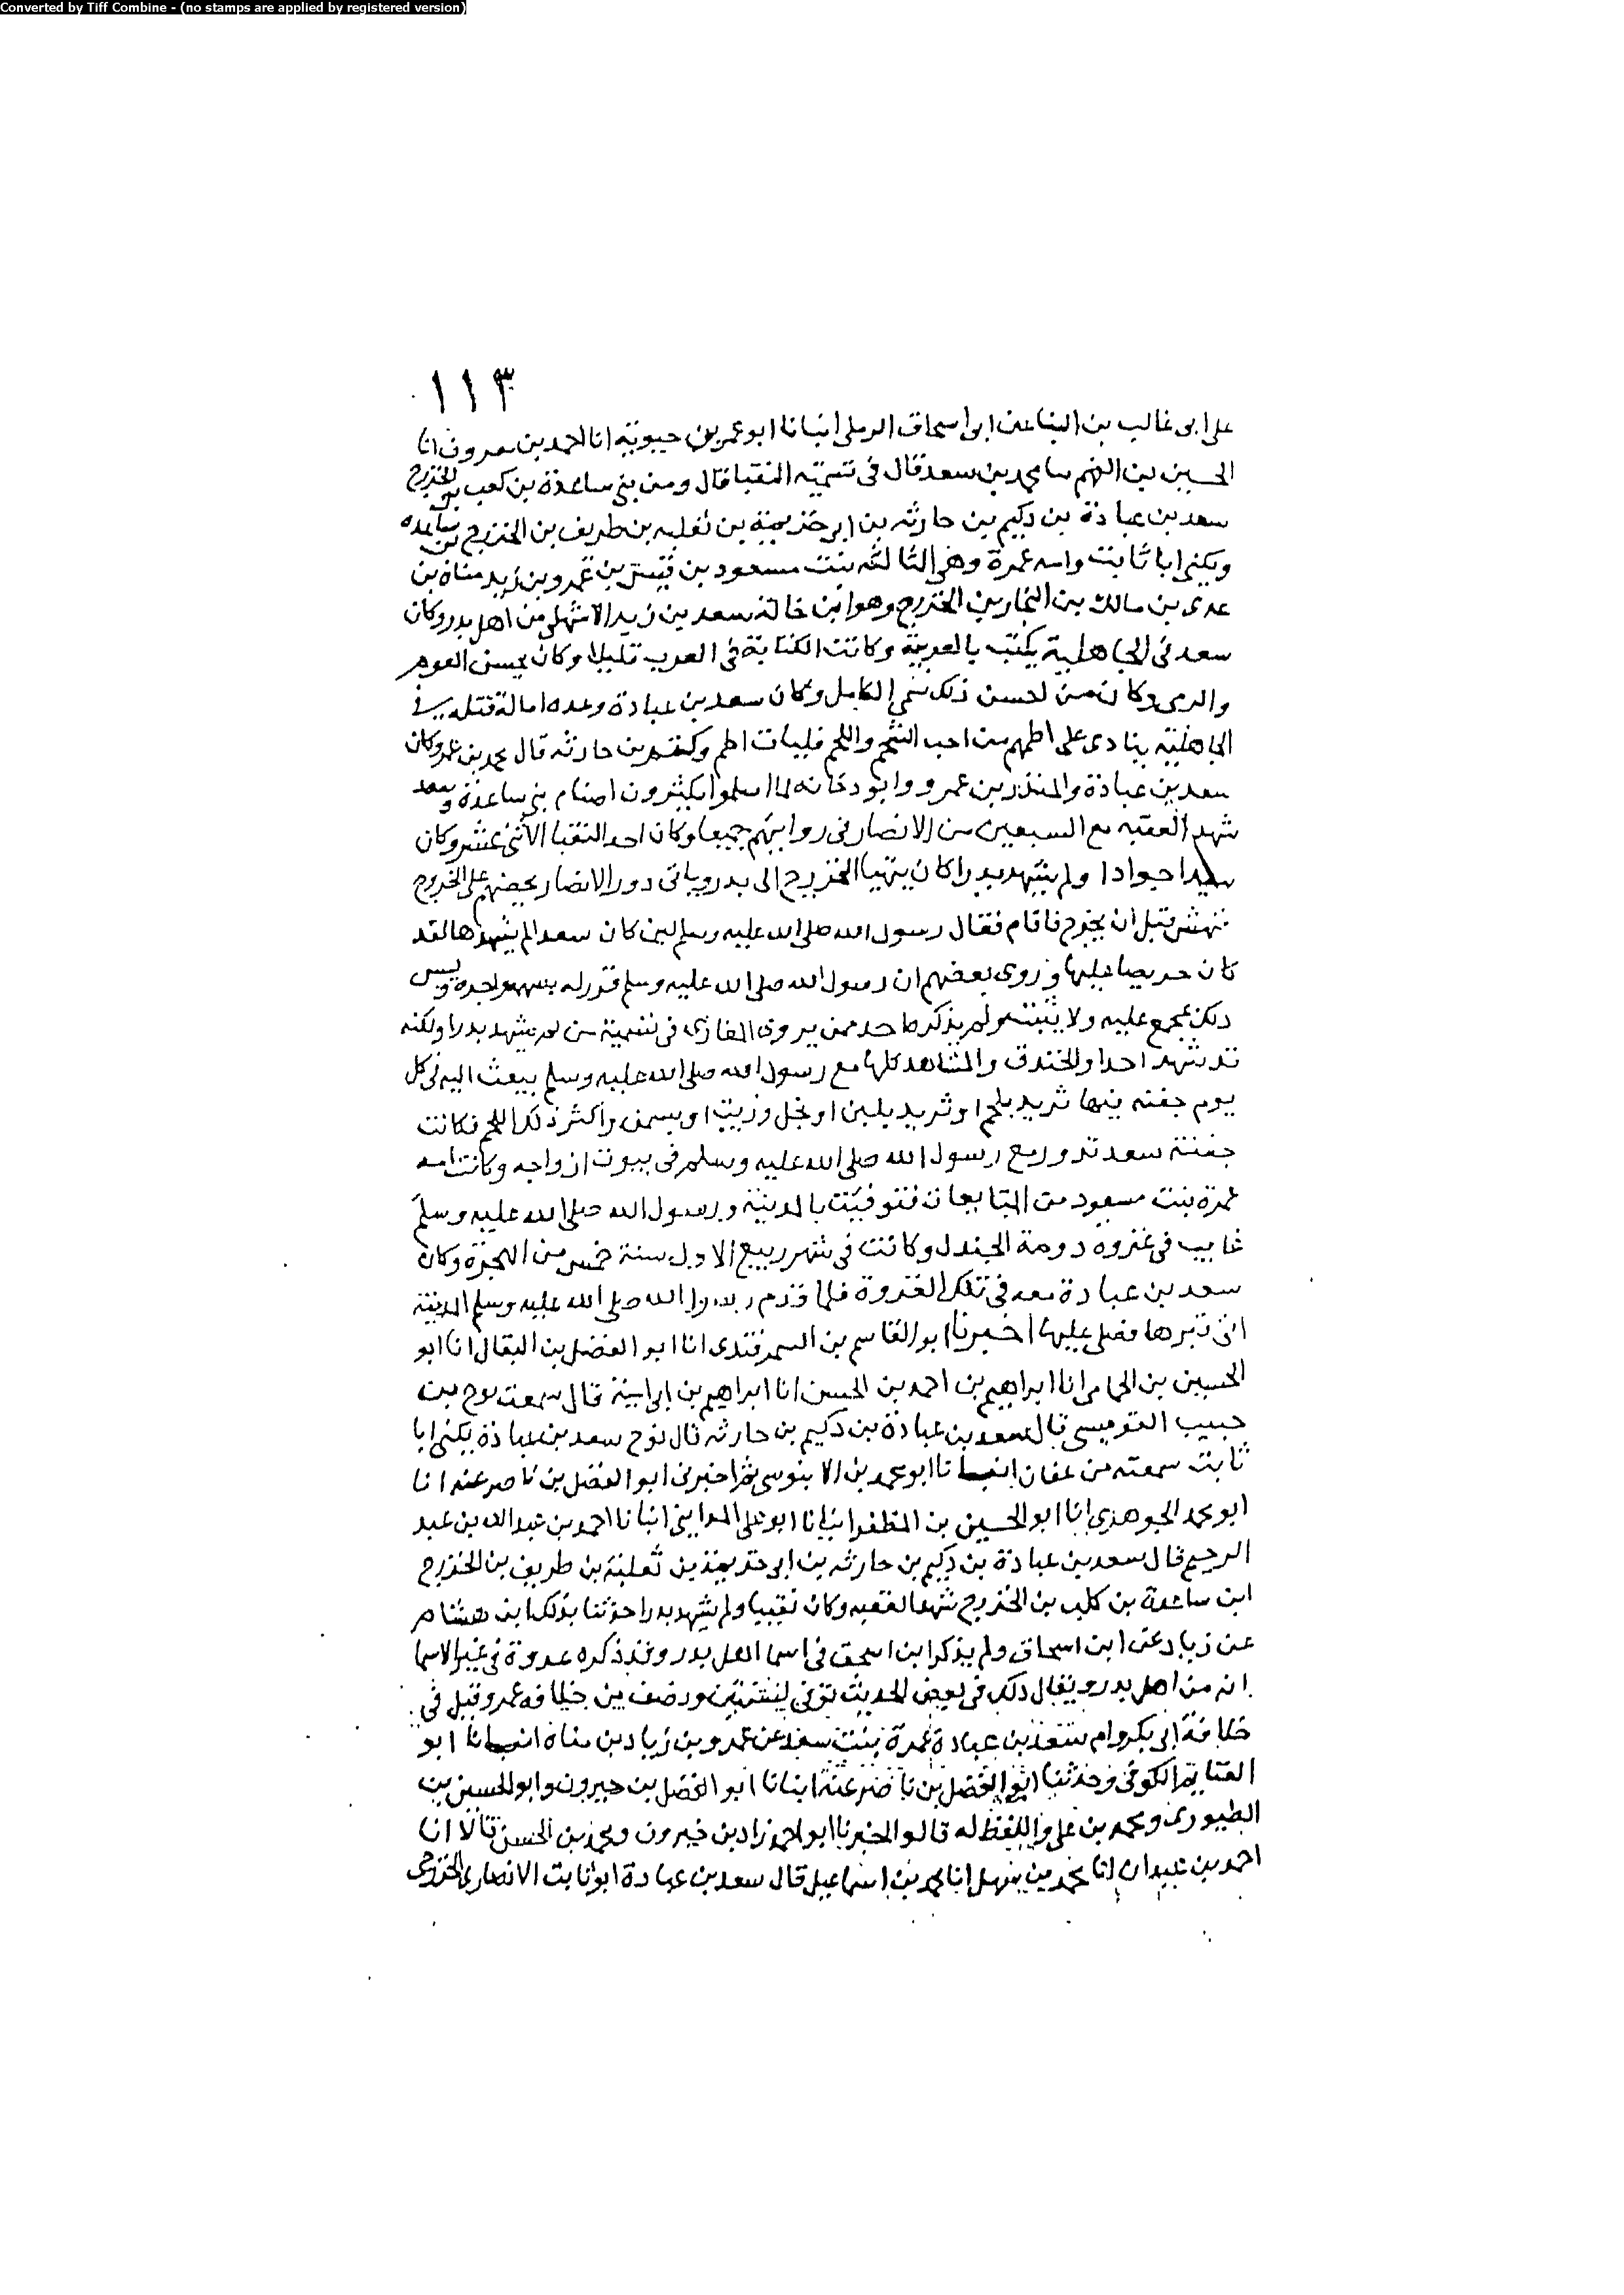 Converted by Tiff Combine - (no stamps are applied by registered version)
١١٣
على ابى غالب بن البنا عن ابى اسحاق الرملى انبانا ابو عمر بن حيوية انا احمد بن معروف انا
الحسين بن الفهم سا محمد بن سعد قال فى تسمية النقبا قال ومن بنى ساعدة بن كعب بن الخزرج
سعد بن عبادة بن دكيم بن حارثه بن ابى خزيمة بن ثعلبه بن طريف بن الخزرج بن ساعده
ويكنى ابا ثابت وامه عمرة وهى الثالثه بنت مسعود بن قيس بن عمرو بن زيد مناة بن
عدى بن مالك بن النجار بن الخزرج وهو ابن خالة سعد بن زيد الاشهلى من اهل بدر وكان
سعد فى الجاهلية يكتب بالعربية وكانت الكتابة فى العرب قليلا وكان يحسن العوم
والرمى وكان من احسن ذلك سمى الكامل وكان سعد بن عبادة وعده اما له قبله فى
الجاهلية ينادى على اطمهم من احب الشحم واللحم فليات اطم دكيم بن حارثه قال محمد بن عمر وكان
سعد بن عبادة والمنذر بن عمرو وابو دجانه لما اسلموا يكثرون اصنام بنى ساعدة وسعد
شهد العقبه مع السبعين من الانصار فى روايتهم جميعا وكان احد النقبا الاثنى عشر وكان
سيدا جوادا ولم يشهد بدرا كان يتهيا الخزرج الى بدر وياتى دور الانصار يحضهم على الخروج
فنهش قبل ان يخرج فاقام فقال رسول الله صلى الله عليه وسلم لين كان سعد لم يشهدها لقد
كان حريصا عليها وروى بعضهم ان رسول الله صلى الله عليه وسلم قدر له بسهمه واجره وليس
ذلك بمجمع عليه ولا يثبت ولم يذكره احد ممن يروى المغازى فى تسمية من لم يشهد بدرا ولكنه
قد شهد احدا والخندق والمشاهد كلها مع رسول الله صلى الله عليه وسلم يبعث اليه فى كل
يوم جفنه فيها ثريد بلحم او ثريد بلبن او بخل وزيت او بسمن واكثر ذلك اللحم فكانت
جفنة سعد تدور مع رسول الله صلى الله عليه وسلم فى بيوت ازواجه وكانت امه
عمرة بنت مسعود من المتابعات فتوفيت بالمدينة ورسول الله صلى الله عليه وسلم
غايب فى غزوه دومة الجندل وكانت فى شهر ربيع الاول سنة خمس من الهجرة وكان
سعد بن عبادة معه فى تلك الغزوة فلما قدم رسول الله صلى الله عليه وسلم المدينة
اتى قبرها فصلى عليها اخبرنا ابو القاسم بن السمرقندى انا ابو الفضل بن البقال انا ابو
الحسين بن الحمامى انا ابراهيم بن احمد بن الحسن انا ابراهيم بن ابى امية قال سمعت نوح بن
حبيب القومسى قال سعد بن عبادة بن دكيم بن حارثه قال نوح سعد بن عبادة يكنى ابا
ثابت سمعته من عفان انبانا ابو محمد بن الابنوسى ثم اخبرنى ابو الفضل بن ناصر عنه انا
ابو محمد الجوهرى انا ابو الحسين بن المظفر انبانا ابو على المداينى انبانا احمد بن عبد الله بن عبد
الرحيم قال سعد بن عبادة بن دكيم بن حارثه بن ابى خزيمة بن ثعلبة بن طريف بن الخزرج
ابن ساعدة بن كلب بن الخزرج شهد العقبه وكان نقيبا ولم يشهد بدرا حدثنا بذلك ابن هشام
عن زياد عن ابن اسحاق ولم يذكر ابن اسحق فى اسما اهل بدر وقد ذكره عروة فى غير الاسما
انه من اهل بدر ويقال ذلك فى بعض الحديث توفى لسنتين ونصف من خلافه عمر وقيل فى
خلافة ابى بكر وام سعد بن عبادة عمرة بنت سعد عن عمرو بن زياد بن مناة انبانا ابو
الغنايم الكوفى وحدثنا ابو الفضل بن ناصر عنه انبانا ابو الفضل بن خيرون وابو الحسين بن
الطيورى ومحمد بن على واللفظ له قالوا اخبرنا ابو احمد زاد بن خيرون ومحمد بن الحسن قالا انا
احمد بن عبدان انا محمد بن سهل انا محمد بن اسماعيل قال سعد بن عبادة ابو ثابت الانصارى الخزرجى